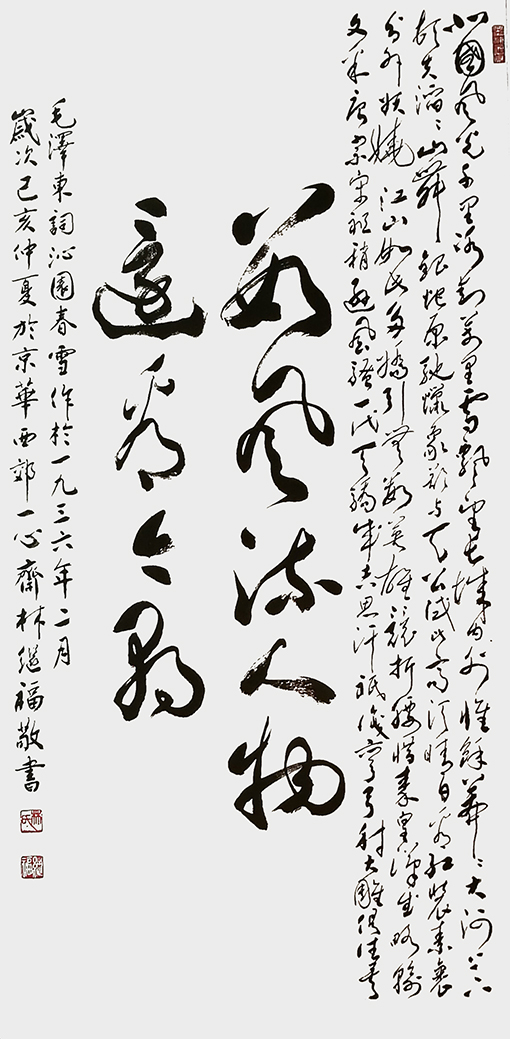 北國風光千里冰封萬里雪飄望長城內外惟餘莽〻大河上下
頓失滔〻山舞銀蛇原馳蠟象欲與天公試比高須晴日看紅裝素裹
分外妖嬈江山如此多嬌引無數英雄競折腰惜秦皇漢武略輸
文采唐宗宋祖稍遜風騷一代天驕成吉思汗祇識彎弓射大雕俱往矣
數風流人物
還看今朝
毛澤東詞沁園春雪作於一九三六年二月
歲次己亥仲夏於京華西郊一心齋林繼福敬書